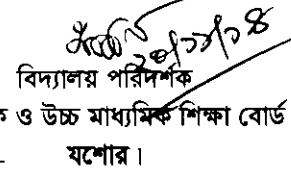 ২০/১১/১৪
বিদ্যালয় পরিদর্শক
ক ও উচ্চ মাধ্যমিক শিক্ষা বোর্ড
যশোর।